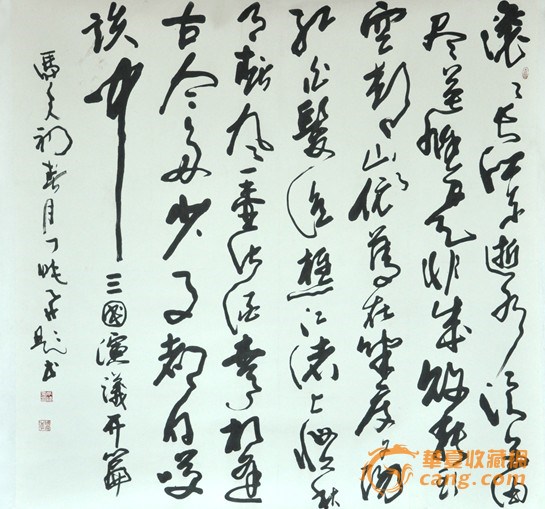 滚〻长江东逝水浪花淘
尽英雄是非成败转头
空青山依旧在几度夕阳
红白髮渔樵江渚上惯看秋
月春风一壶浊酒喜相逢
古今多少事都付笑
谈中
三國演議开篇
馬年初春月丁
華夏收藏網
cang.com